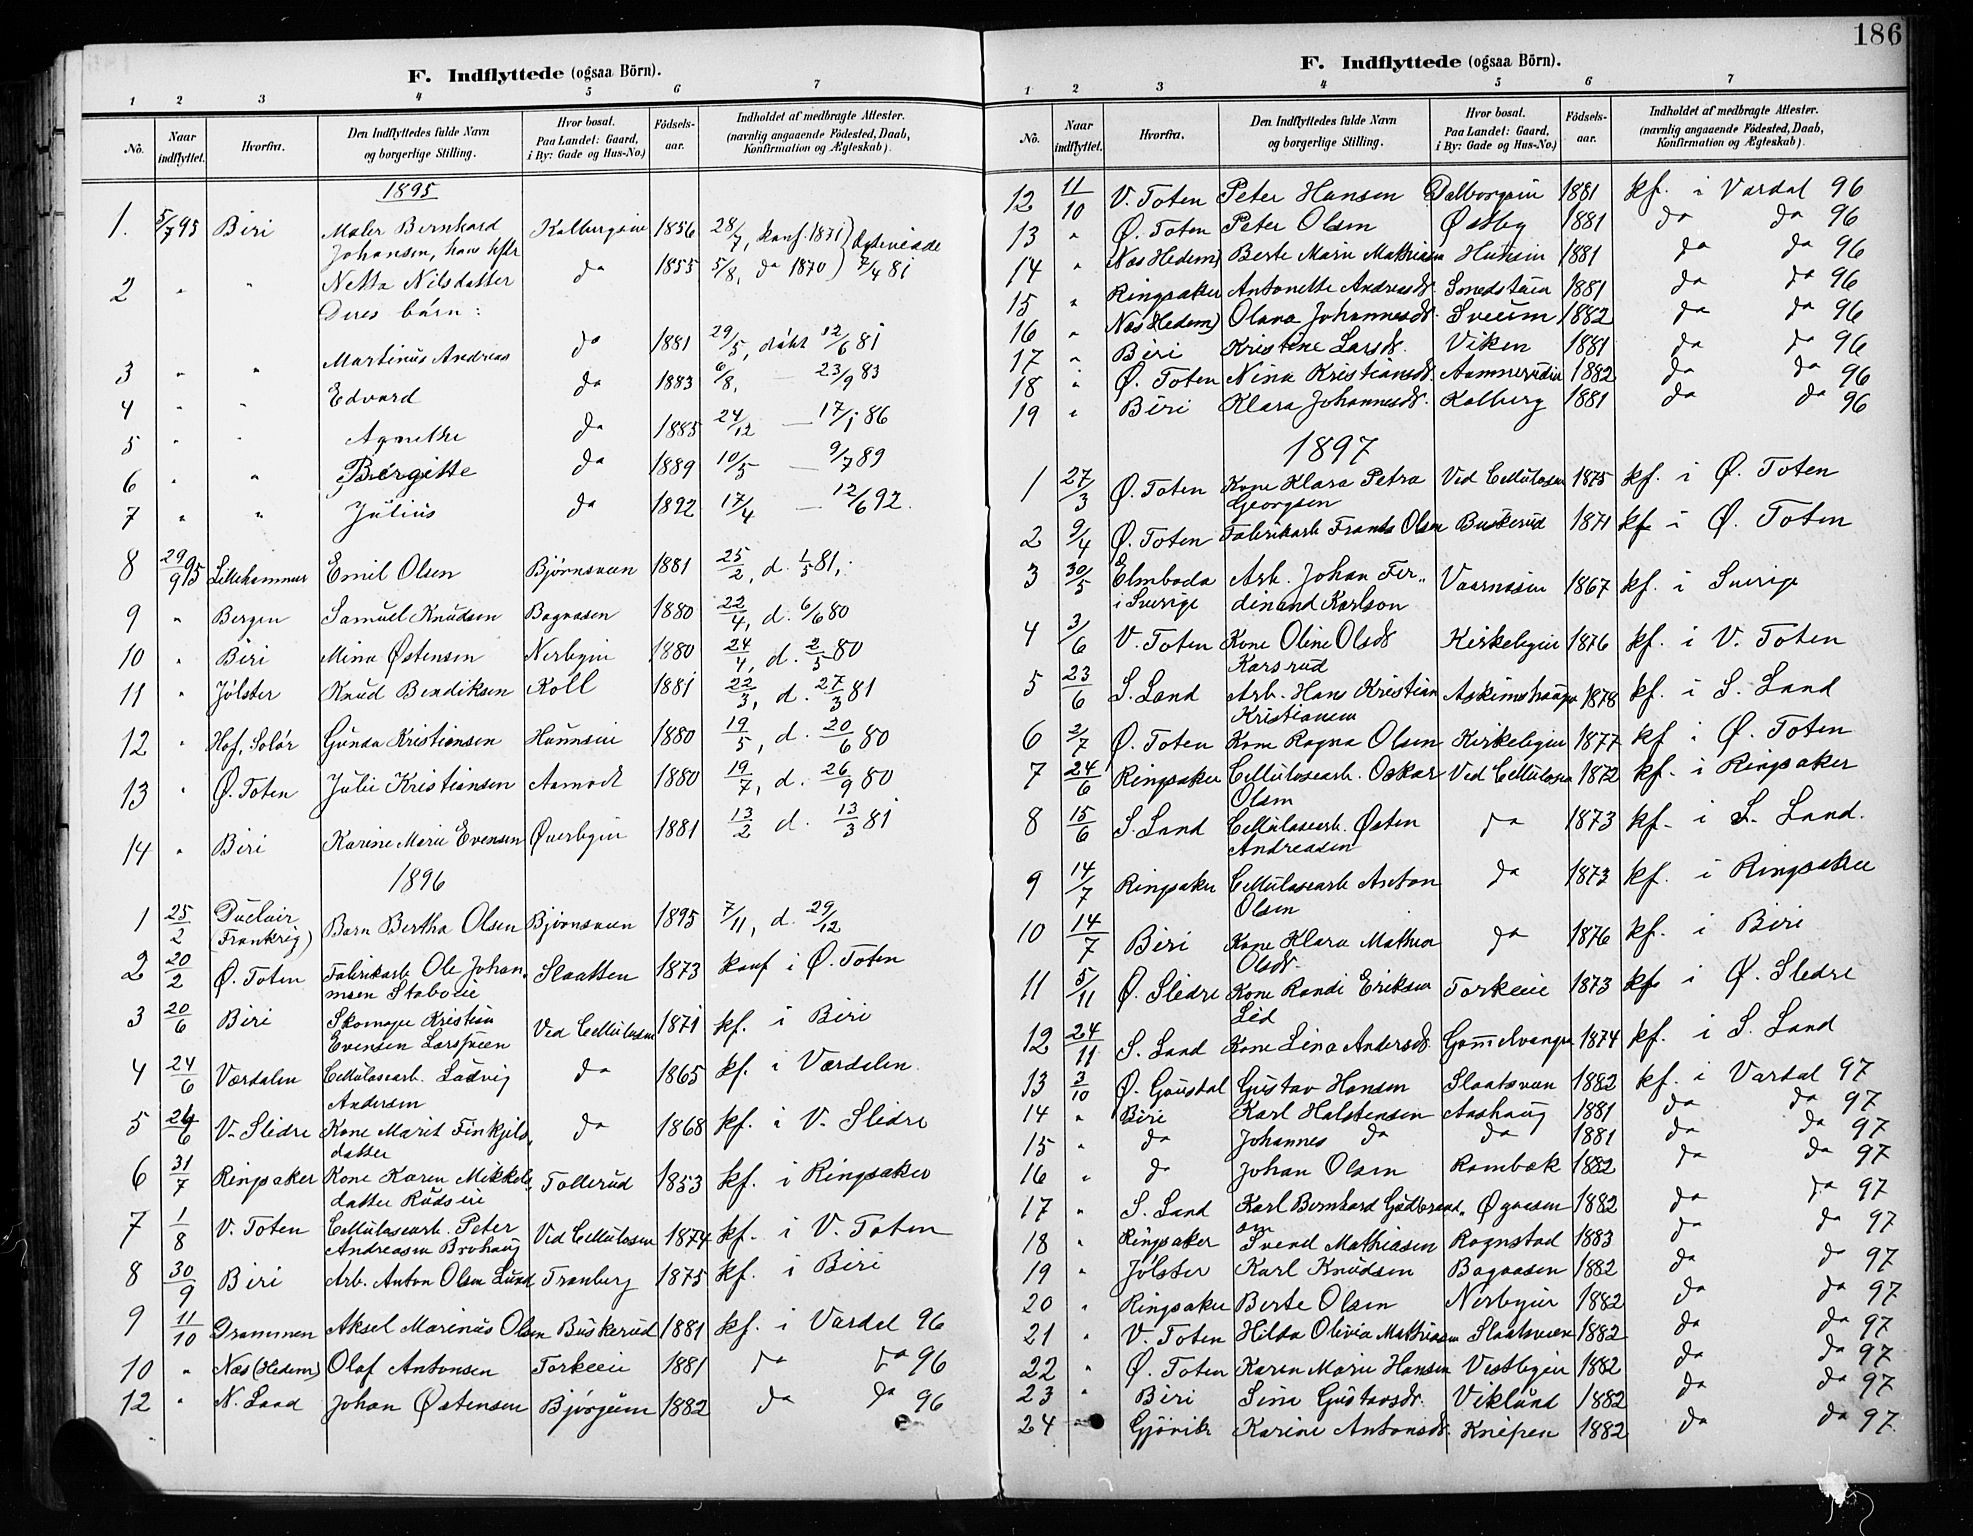 F. Indflyttede (ogsaa Börn).
1 2 3 4 5 6 7
No. Naar indflyttet. Hvorfra. Den Indflyttedes fulde Navn og borgerlige Stilling. Hvor bosat. Paa Landet: Gaard, i By: Gade og Hus-No.) Födselsaar. Indholdet af medbragte Attester. (navnlig angaaende Födested, Daab, Konfirmation og Ægteskab).
1895
1. 5/7 95 Biri Maler Bernhard Kolbergeie 1856 28/7, konf. 1871
Johansen, hans hstr
2 " " Netta Nilsdatter da 1855 5/8, da 1870 7/4 81
Deres børn:
3 " " Martinus Andreas da 1881 29/5, døbt 12/6 81
4 " " Edvard da 1883 6/8, — 23/9 83
5 " " Agnethe da 1885 24/12 — 17/1 86
6 " " Birgitte da 1889 10/5 — 9/7 89
7 " " Julius da 1892 17/4 — 12/6 92.
8 29/9 95 Lillehammer Emil Olsen Bjørnsveen 1881 25/2, d. 1/5 81,.
9 " Bergen Samuel Knudsen Bagaasen 1880 22/4, d. 6/6 80
10 " Biri Mina Østensen Nerbyeie 1880 24/4, d. 2/5 80
11 " Jølster Knud Bendiksen Koll 1881 22/3, d. 27/3 81
12 " Hof, Solør Gunda Kristiansen Hunnseie 1880 19/5, d. 20/6 80
13 " Ø. Toten Julie Kristiansen Aamodt 1880 19/7, d. 26/9 80
14 " Biri Karine Marie Evensen Øverbyeie 1881 13/2 d. 13/3 81
1896
1 25/2 Duclair (Frankrig) Barn Bertha Olsen Bjørnsveen 1895 7/11, d. 29/12
2 20/2 Ø. Toten Fabrikarb. Ole Johan- Slaatten 1873 konf i Ø. Toten
nsen Staboeie
3 20/6 Biri Skomager Kristian Ved Cellulosen 1871 kf. i Biri
Evensen Larsveen
4 24/6 Værdalen Cellulosearb. Ludvig da 1865 kf. i Værdalen
Andersen
5 24/6 V. Slidre Kone Marit Finkjels- da 1868 kf. i V. Slidre
datter
6 31/7 Ringsaker Kone Karen Mikkels- Tollerud 1853 kf. i Ringsaker
datter Rudseie
7 1/8 V. Toten Cellulosearb. Peter Ved Cellulosen 1874 kf. i V. Toten
Andreasen Brohaug
8 30/9 Biri Arb. Anton Olsen Lund Tranberg 1875 kf. i Biri
9 11/10 Drammen Aksel Marinus Olsen Buskerud 1881 kf. i Vardal 96
10 " Næs (Hedem) Olaf Antonsen Torkeeie 1881 da da 96
12 " N. Land Johan Østensen Bjørgeim 1882 da da 96
186
F. Indflyttede (ogsaa Börn).
1 2 3 4 5 6 7
No. Naar indflyttet. Hvorfra. Den Indflyttedes fulde Navn og borgerlige Stilling. Hvor bosat. Paa Landet: Gaard, i By: Gade og Hus-No.) Födselsaar. Indholdet af medbragte Attester. (navnlig angaaende Födested, Daab, Konfirmation og Ægteskab).
12 11/10 V. Toten Peter Hansen Dalborgeie 1881 kf. i Vardal 96
13 " Ø. Toten Peter Olsen Østby 1881 da da 96
14 " Næs Hedem) Berte Marie Mathiasen Hunseie 1881 da da 96
15 " Ringsaker Antonette Andreasd. Smedstuen 1881 da da 96
16 " Næs (Hedem) Olava Johannesd. Sveum 1882 da da 96
17 " Biri Kristine Larsd. Viken 1881 da da 96
18 " Ø. Toten Nina Kristiansd. Aamerudeie 1882 da da 96
19 " Biri Klara Johannesd. Kolberg 1881 da da 96
1897
1 27/3 Ø. Toten Kone Klara Petra Ved Cellulosen 1875 kf. i Ø. Toten
Georgsen
2 9/4 Ø. Toten Fabrikarb Frants Olsen Buskerud 1871 kf i Ø. Toten
3 30/5 Elmboda Arb. Johan Fer- Vaarnaasen 1867 kf. i Sverige
i Sverige dinand Karlson
4 3/6 V. Toten Kone Oline Olsd. Kirkebyeie 1876 kf. i V. Toten
Karsrud
5 23/6 S. Land Arb. Hans Kristian Askimshaugen 1878 kf. i S. Land
Kristiansen
6 2/7 Ø. Toten Kone Ragna Olsen Kirkebyeie 1877 kf i Ø. Toten
7 24/6 Ringsaker Cellulosearb. Oskar Ved Cellulosen 1872 kf. i Ringsaker
Olsen
8 15/6 S. Land Cellulosearb. Østen da 1873 kf. i S. Land.
Andreasen
9 14/7 Ringsaker Cellulosearb Anton da 1873 kf. i Ringsaker
Olsen
10 14/7 Biri Kone Klara Mathea da 1876 kf. i Biri
Olsd.
11 5/11 Ø. Slidre Kone Randi Eriksen Torkeeie 1873 kf. i Ø. Slidre
Lid
12 24/11 S. Land Kone Lina Andersd. 1874 kf. i S. Land
13 3/10 Ø. Gausdal Gustav Hansen Slaatsveen 1882 kf. i Vardal 97
14 " Biri Karl Halstensen Aashaug 1881 da da 97
15 " da Johannes da da 1881 da da 97
16 " da Johan Olsen Rambæk 1882 da da 97
17 " S. Land Karl Bernhard Gudbrand- Øgaasen 1882 da da 97
sen
18 " Ringsaker Svend Mathiasen Rognstad 1883 da da 97
19 " Jølster Karl Knudsen Bagaasen 1882 da da 97
20 " Ringsaker Berte Olsen Nerbyeie 1882 da da 97
21 " V. Toten Hilda Olivia Mathiasen Slaatsveen 1882 da da 97
22 " Ø. Toten Karen Marie Hansen Vestbyeie 1882 da da 97
23 " Biri Sine Gustavsd. Viklund 1882 da da 97
24 " Gjøvik Karine Antonsd. Knipen 1882 da da 97.